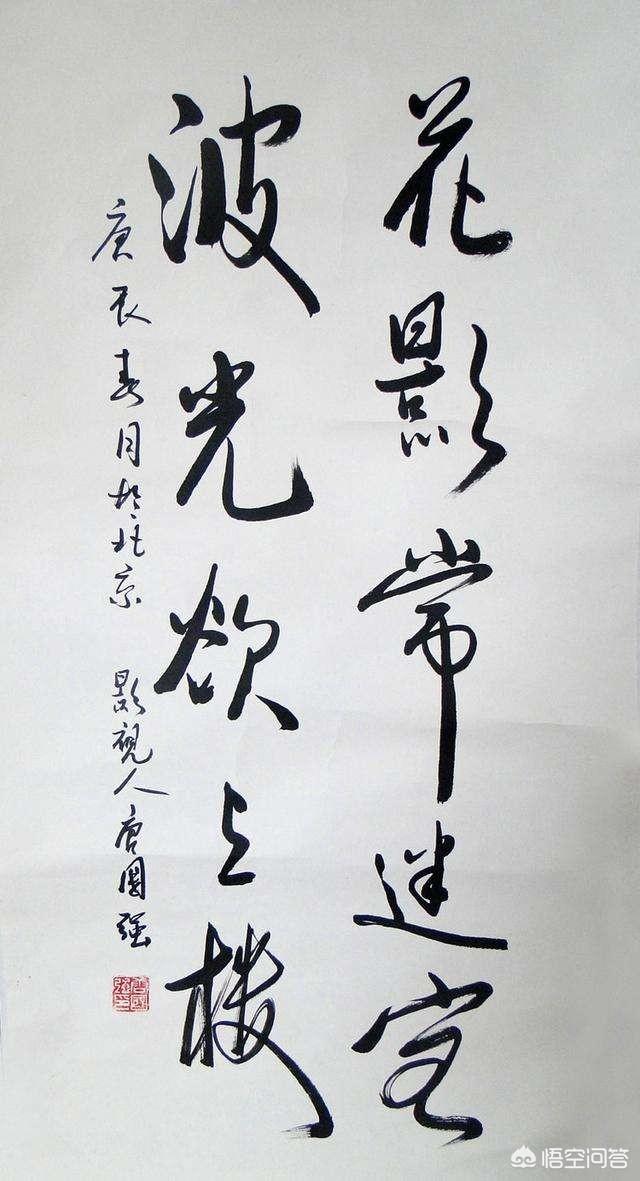 花影常迷客
波光欲上楼
庚辰春月於北京 影视人唐国强
唐国强印
悟空问答